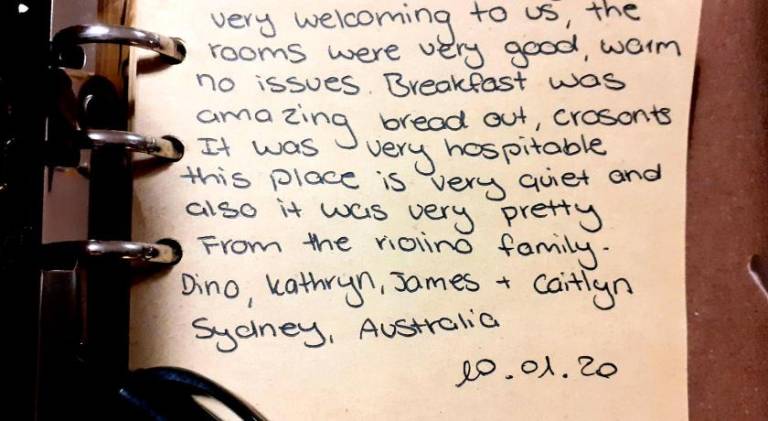 very welcoming to us, the
rooms were very good, warm
no issues. Breakfast was
amazing bread out, crosonts
It was very hospitable
this place is very quiet and
also it was very pretty
From the family.
Dino, Kathryn, James + Caitlyn
Sydney, Australia
10.01.20